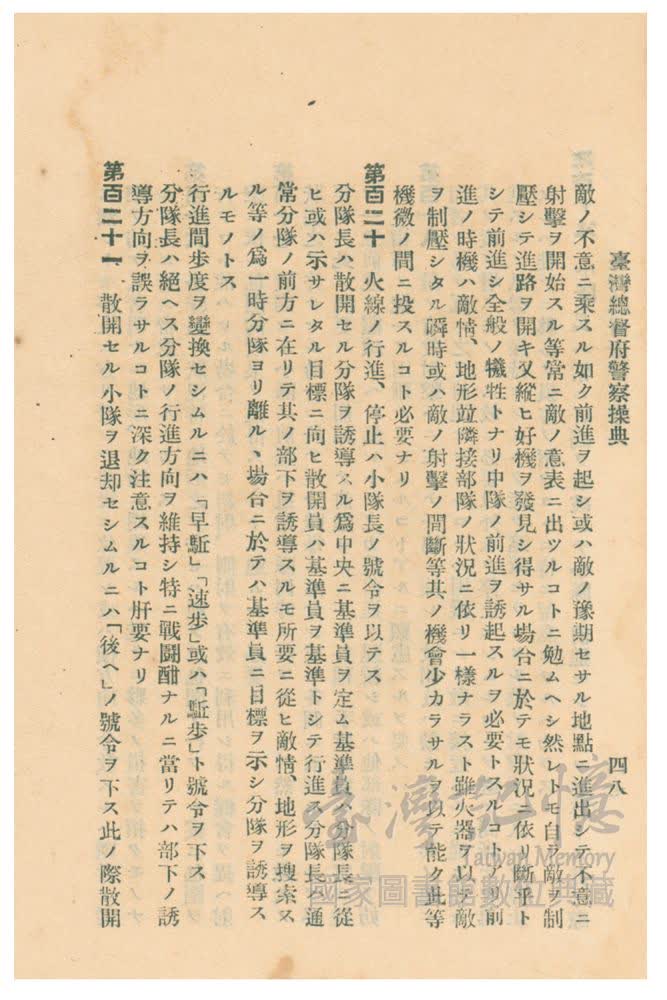 臺灣總督府警察操典
四八
敵ノ不意ニ乘スル如ク前進ヲ起シ或ハ敵ノ豫期セサル地點ニ進出シテ不意ニ
射擊ヲ開始スル等常ニ敵ノ意表ニ出ツルコトニ勉ムヘシ然レトモ自ラ敵ヲ制
壓シテ進路ヲ開キ又縱ヒ好機ヲ發見シ得サル場合ニ於テモ狀況ニ依リ斷乎ト
シテ前進シ全般ノ犧牲トナリ中隊ノ前進ヲ誘起スルヲ必要トスルコトアリ前
進ノ時機ハ敵情、地形竝隣接部隊ノ狀況ニ依リ一樣ナラスト雖火器ヲ以テ敵
ヲ制壓シタル瞬時或ハ敵ノ射擊ノ間斷等其ノ機會少カラサルヲ以テ能ク此等
機微ノ間ニ投スルコト必要ナリ
第百二十 火線ノ行進、停止ハ小隊長ノ號令ヲ以テス
分隊長ハ散開セル分隊ヲ誘導スル爲中央ニ基準員ヲ定ム基準員ハ分隊長ニ從
ヒ或ハ示サレタル目標ニ向ヒ散開員ハ基準員ヲ基準トシテ行進ス分隊長ハ通
常分隊ノ前方ニ在リテ其ノ部下ヲ誘導スルモ所要ニ從ヒ敵情、地形ヲ搜索ス
ル等ノ爲一時分隊ヨリ離ルヽ場合ニ於テハ基準員ニ目標ヲ示シ分隊ヲ誘導ス
ルモノトス
行進間步度ヲ變換セシムルニハ「早駈」「速步」或ハ「駈步」ト號令ヲ下ス
分隊長ハ絕ヘス分隊ノ行進方向ヲ維持シ特ニ戰鬪酣ナルニ當リテハ部下ノ誘
導方向ヲ誤ラサルコトニ深ク注意スルコト肝要ナリ
第百二十一 散開セル小隊ヲ退却セシムルニハ「後ヘ」ノ號令ヲ下ス此ノ際散開
臺灣記憶
Taiwan Memory
國家圖書館數位典藏